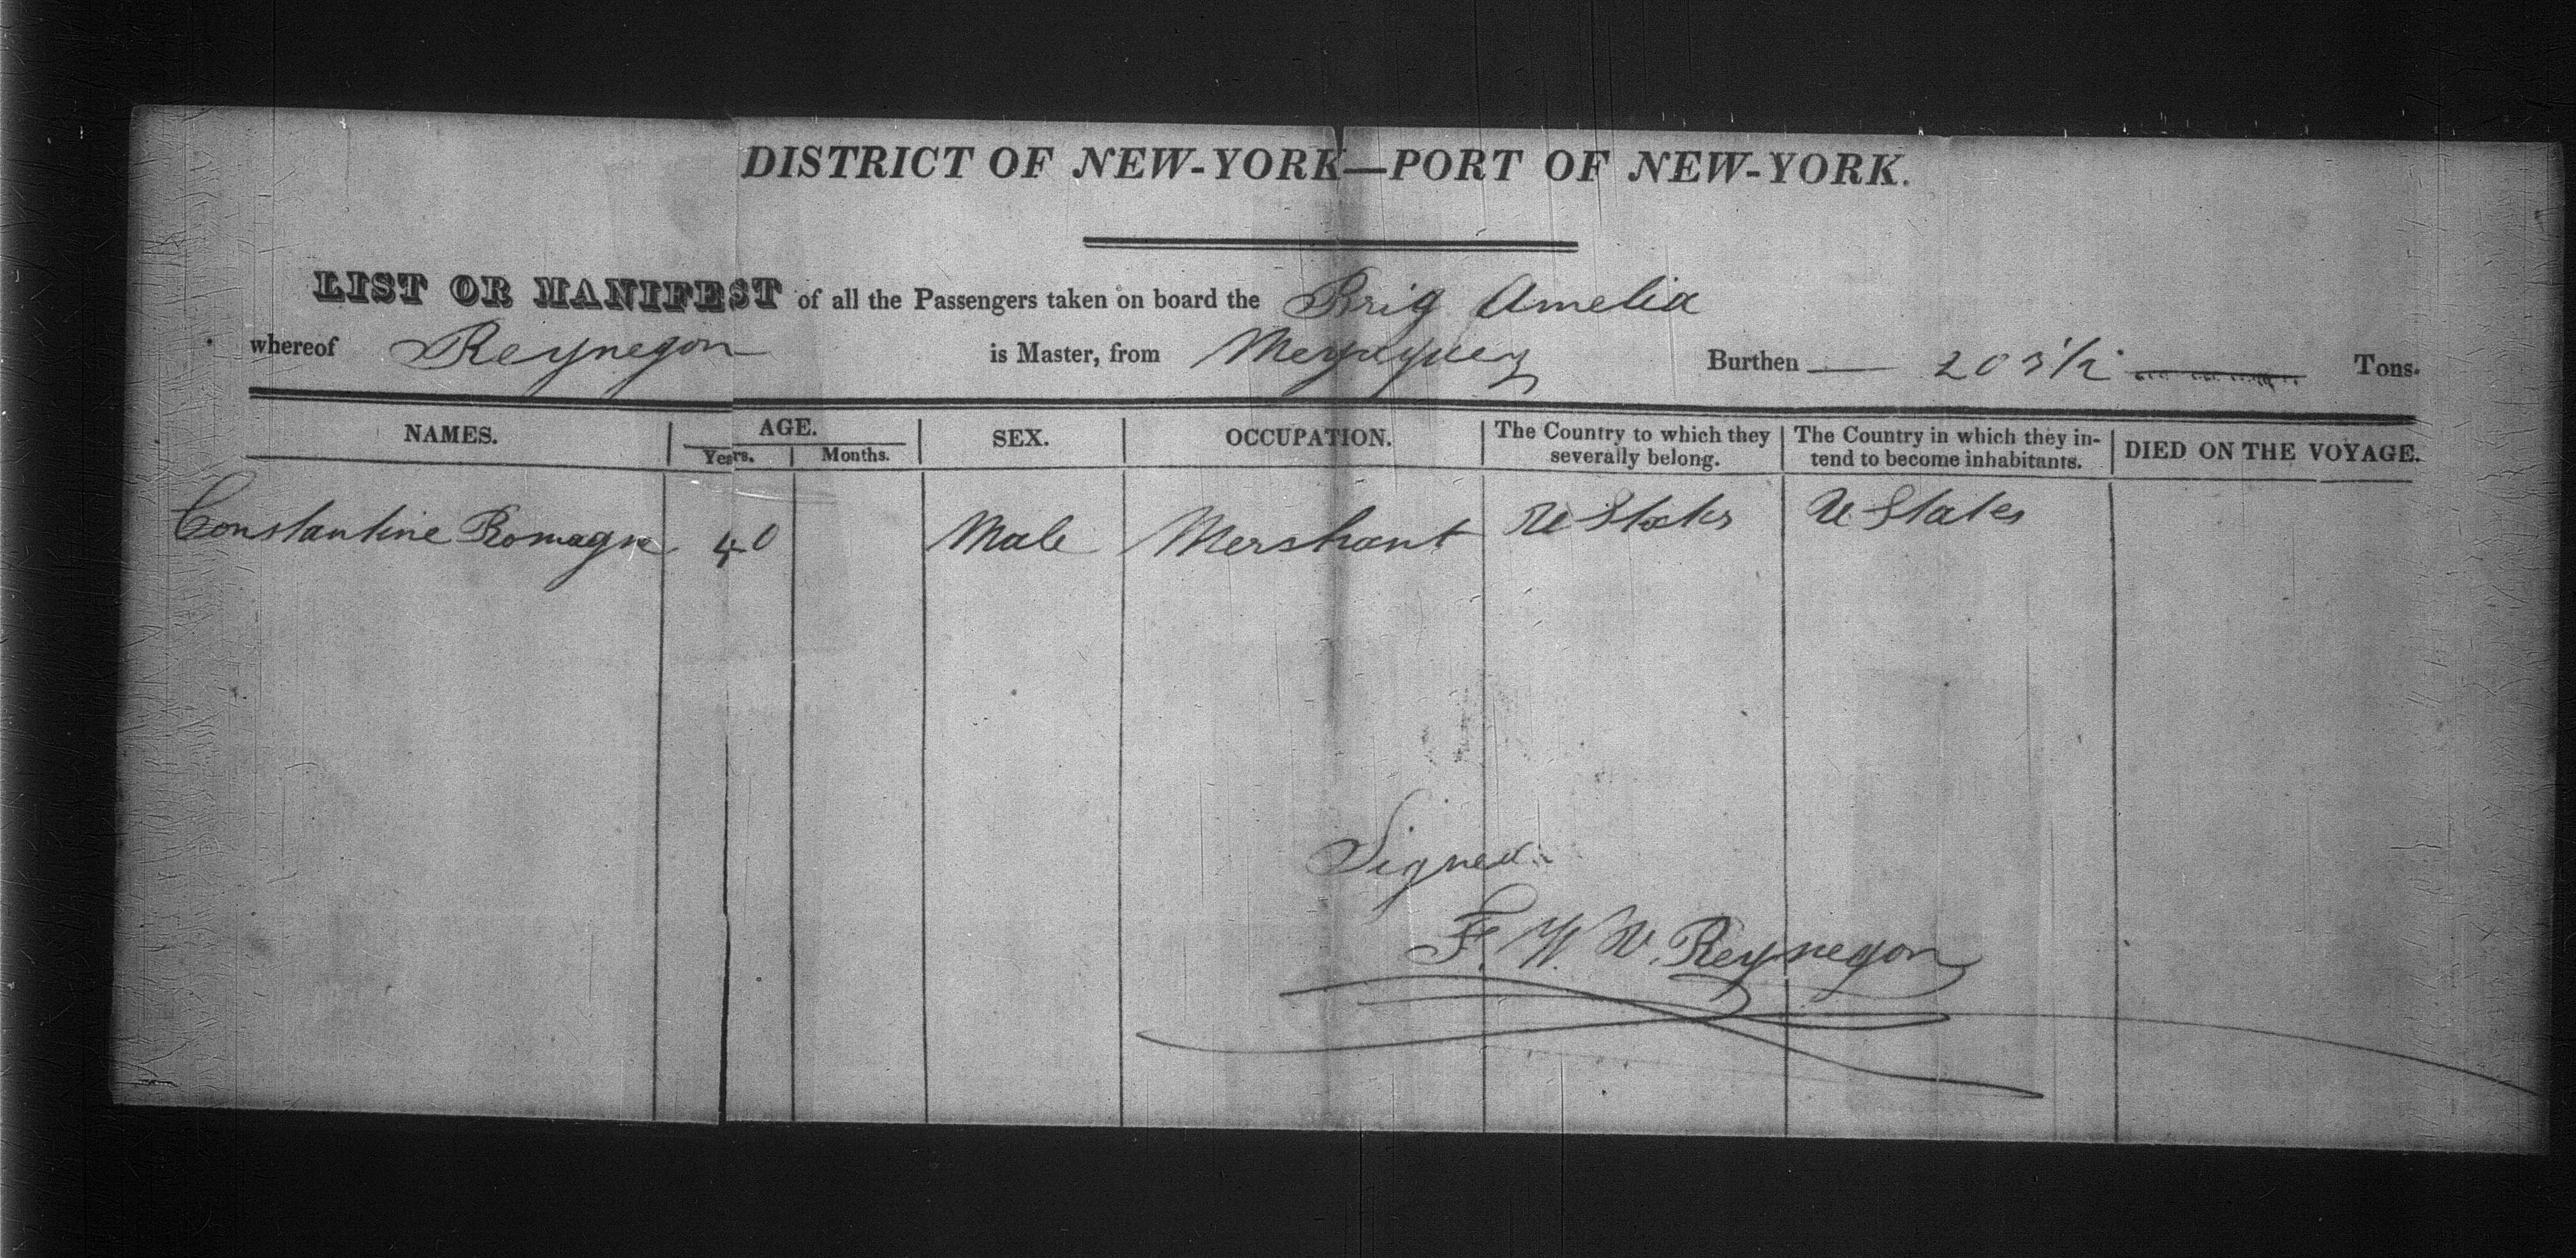 DISTRICT OF NEW-YORK—PORT OF NEW-YORK.
LIST OR MANIFEST of all the Passengers taken on board the Brig Amelia
whereof Reynegon is Master, from Meyaguez Burthen — 203½ Tons.
NAMES. AGE. SEX. OCCUPATION. The Country to which they severally belong. The Country in which they intend to become inhabitants. DIED ON THE VOYAGE.
Years. Months.
Constantine Romagne 40 Male Mershant U States U States
Signed
F. W. W. Reynegon